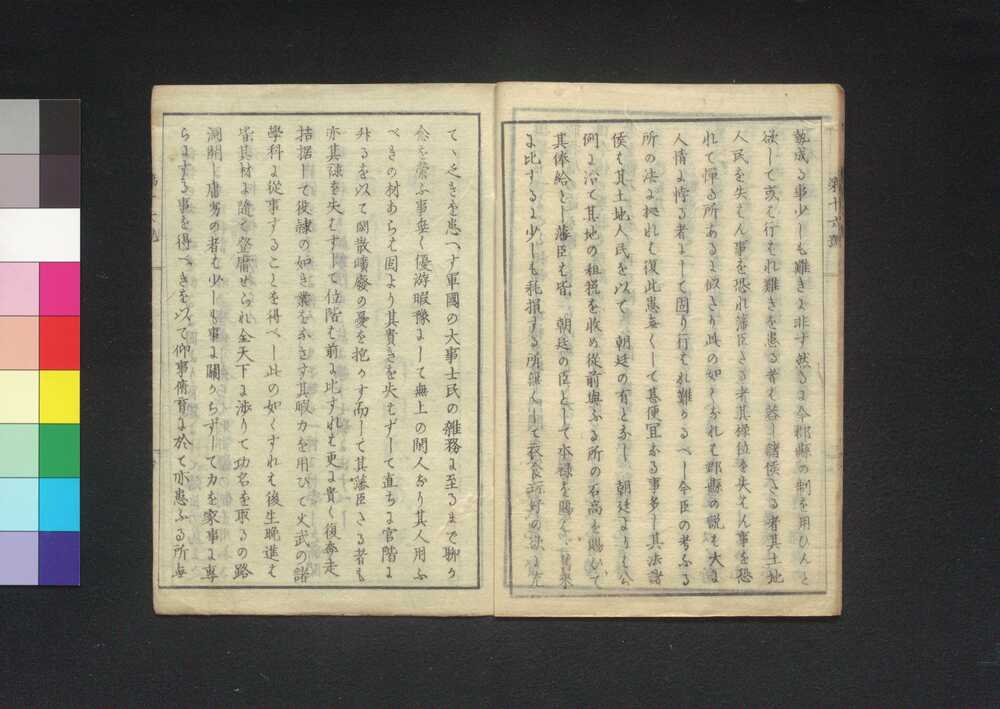 勢成る事少しも難きに非す然るに今郡縣の制を用ひんと
欲して或は行はれ難きを患る者は蓋し諸侯たる者其土地
人民を失はん事を恐れ藩臣たる者其祿位を失はん事を恐
れて憚る所あるに似たり此の如くなれは郡縣の説も大に
人情に悖る者にして固り行はれ難かるへし今臣の考ふる
所の法に拠れは復此患無くして甚便宜なる事多し其法諸
侯は其土地人民を以て 朝廷の有となし 朝廷よりも公
例に沿て其地の租税を收め從前與ふる所の石高を賜ひて
其俸給とし藩臣も皆 朝廷の臣として本祿を賜
に比するに少しも耗損する所無くして衣食玩好の欲に充
て、乏きを患へす軍國の大事士民の雑務に至るまで聊か
念を勞ふ事無く優游暇豫にして無上の閑人なり其人用ふ
べきの材あらは固より其貴きを失はずして直ちに官階に
昇るを以て閑散曠廢の憂を抱かす而して其藩臣たる者も
亦其祿を失はすして位階も前に比すれは更に貴く復奔走
拮据して役隷の如き業をなさす其暇力を用ひて文武の諸
學科に從事することを得べし此の如くすれは後生晩進も
皆其材に隨て登庸せられ全天下に渉りて功名を取るの路
洞開し庸劣の者も少しも事に關からずして力を家事に專
らにする事を得べきを以て仰事俯育に於て亦患ふる所無
第十六號